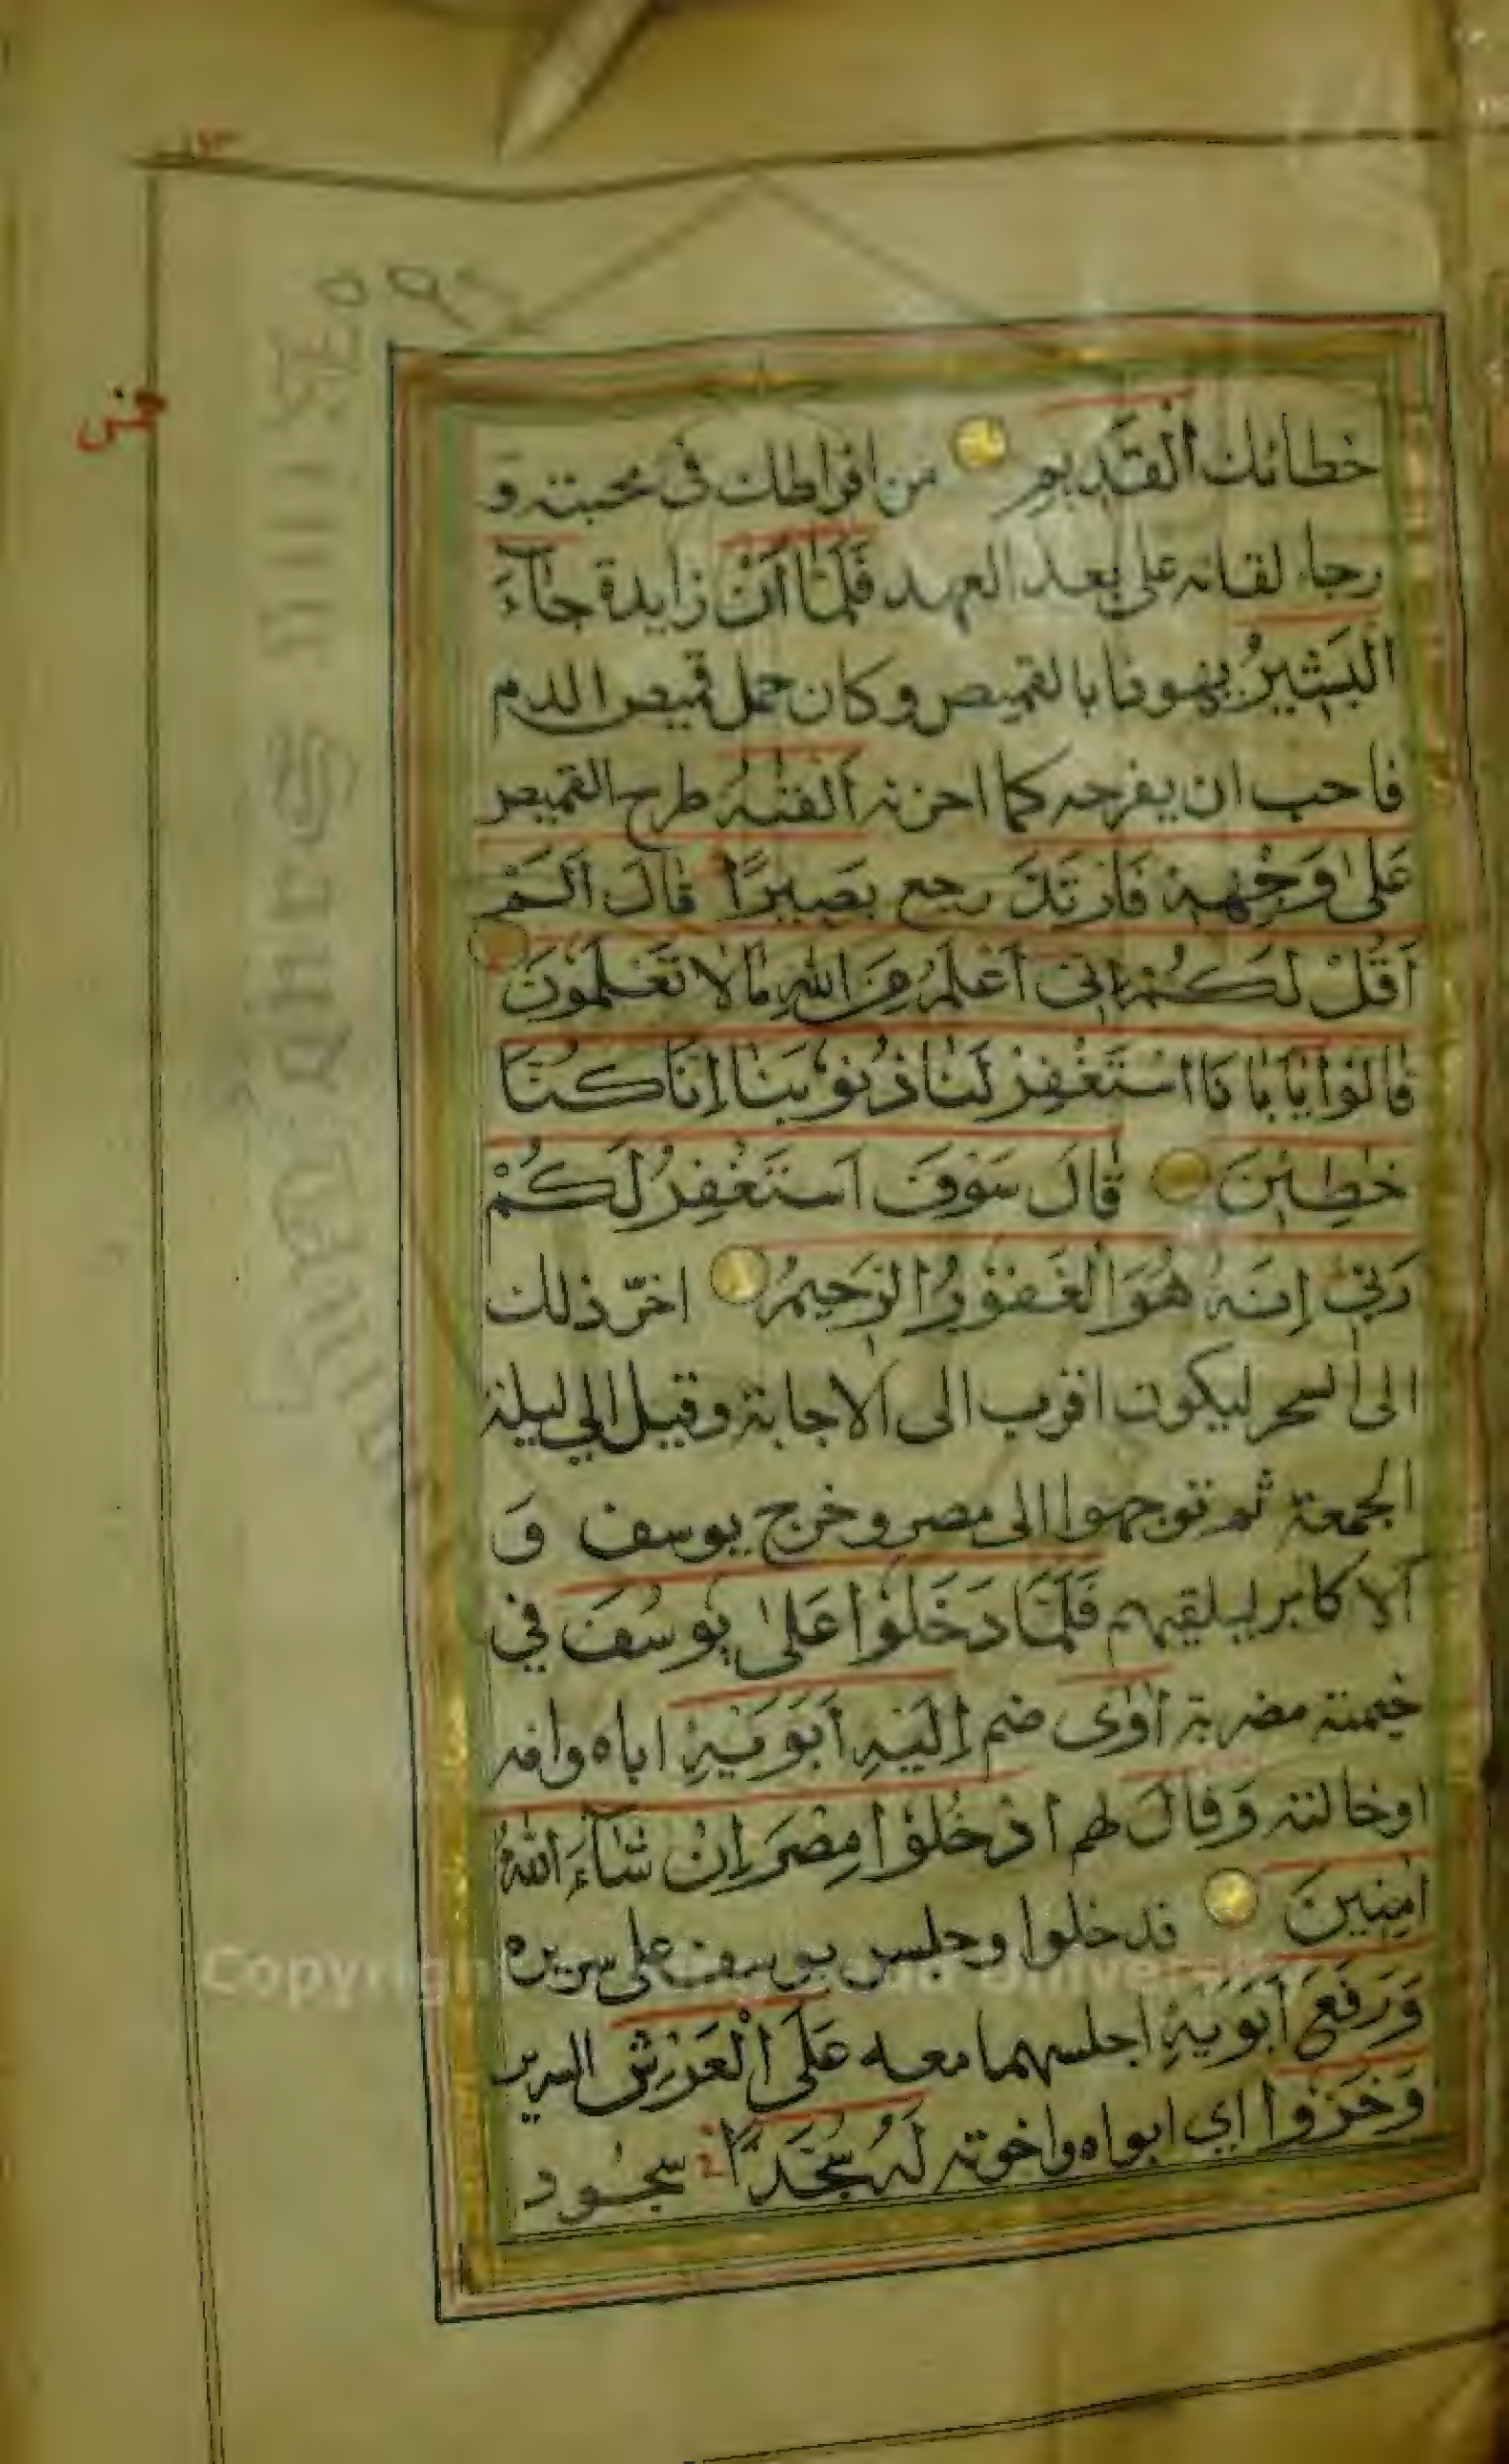 خطائك اَلْقَدِيمِ من افراطك فى محبته و
رجا لقائه على بعد العهد فَلَمَّا اَنْ زايدة جَاۤءَ
الْبَشِيرُ يهودا بالقميص وكان حمل قميص الدم
فاحب ان يفرحه كما احزنه اَلْقٰيهُ طرح القميص
عَلٰى وَجْهِهٖ فَارْتَدَّ رجع بَصِيرًا قَالَ اَلَمْ
اَقُلْ لَكُمْ اِنّٖى اَعْلَمُ مِنَ اللّٰهِ مَا لَا تَعْلَمُونَ
قَالُوا يَاۤاَبَانَا اسْتَغْفِرْ لَنَا ذُنُوبَنَا اِنَّا كُنَّا
خٰطِـٖٔينَ قَالَ سَوْفَ اَسْتَغْفِرُ لَكُمْ
رَبّٖى اِنَّهُ هُوَ الْغَفُورُ الرَّحِيمُ اخّر ذلك
الى السحر ليكون اقرب الى الاجابة وقيل الي ليلة
الجمعة ثم توجهوا الى مصر وخرج يوسف وَ
الاكابر ليلقيهم فَلَمَّا دَخَلُوا عَلٰى يُوسُفَ في
خيمته مضربة اٰوٰۤى ضم اِلَيْهِ اَبَوَيْهِ اباه وامه
اوخالته وَقَالَ لهم ادْخُلُوا مِصْرَ اِنْ شَاۤءَ اللّٰهُ
اٰمِنِينَ فدخلوا وجلس يوسف على سريره
وَرَفَعَ اَبَوَيْهِ اجلسهما معه عَلَى الْعَرْشِ السرير
وَخَرُّوا اي ابواه واخوته لَهُ سُجَّدًا سجُود